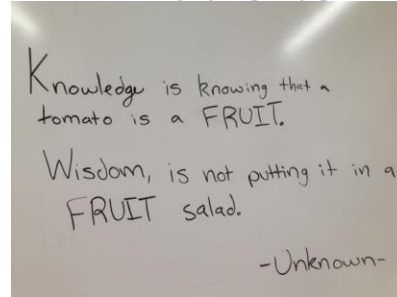 Knowledge is knowing that a
tomato is a FRUIT.
Wisdom, is not putting it in a
FRUIT salad.
-Unknown-